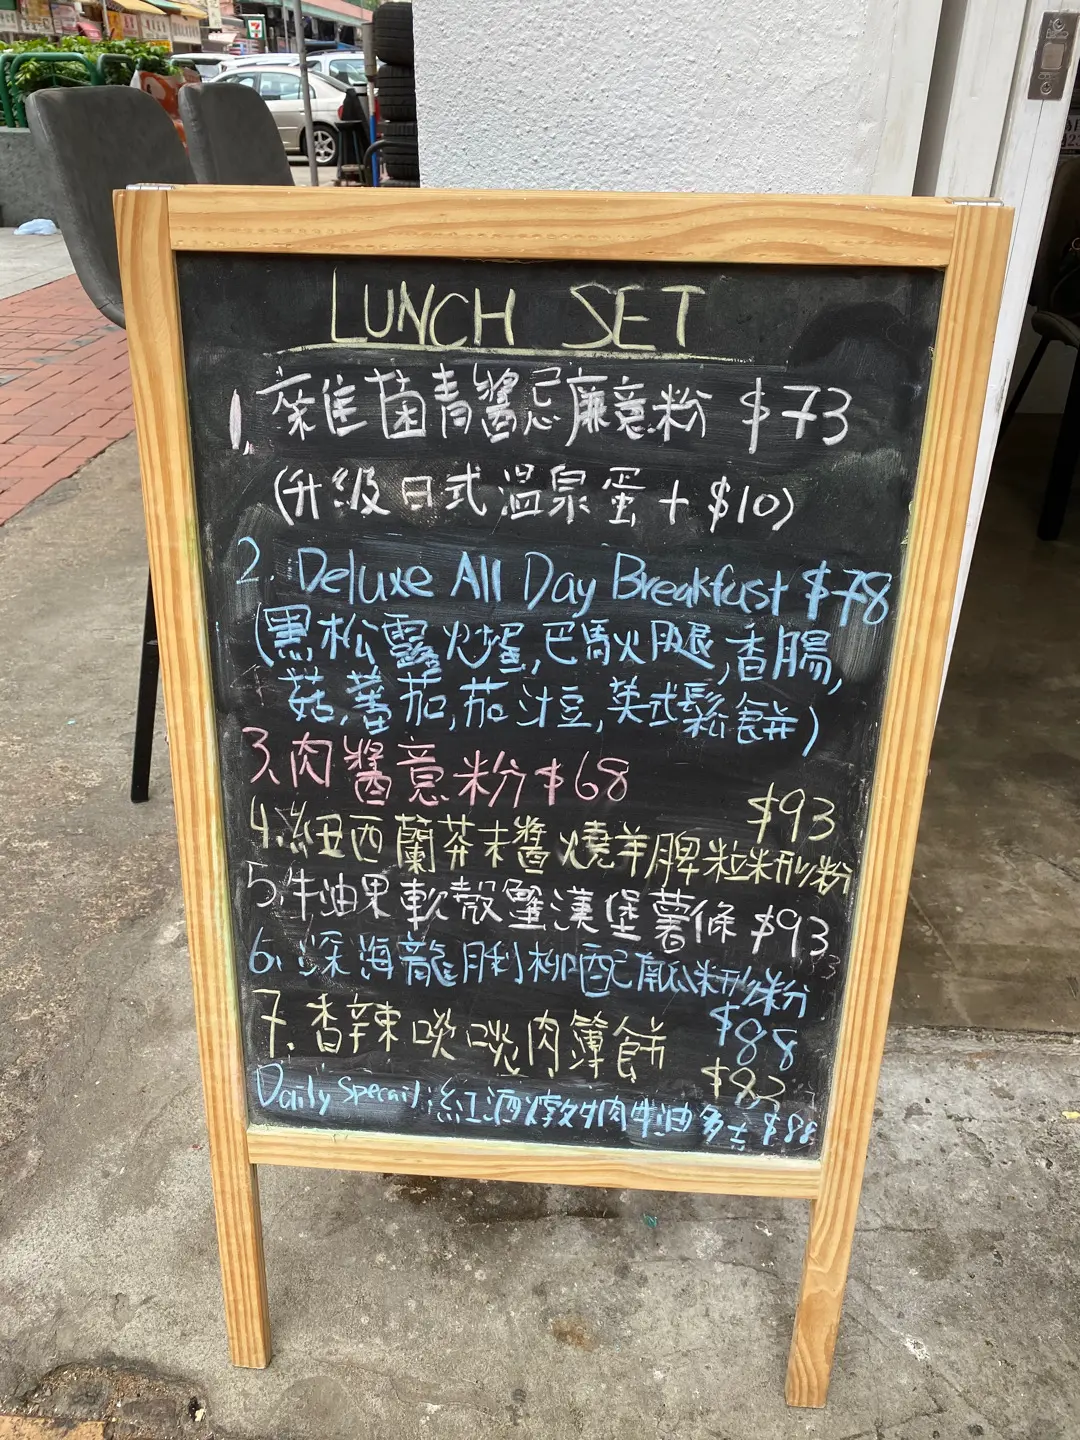 LUNCH SET
1. 雜菌青醬忌廉意粉 $73
(升級日式溫泉蛋 + $10)
2. Deluxe All Day Breakfast $78
(黑松露炒蛋, 巴馬火腿, 香腸,
菇, 蕃茄, 茄汁豆, 英式鬆餅)
3. 肉醬意粉 $68
$93
4. 紐西蘭芥末醬燒羊脾粒米形粉
5. 牛油果軟殼蟹漢堡薯條 $93
6. 深海龍脷柳配南瓜米形粉
$88
7. 香辣啖啖肉薄餅
Daily Specail: 紅酒炆牛肋肉牛油多士 $88